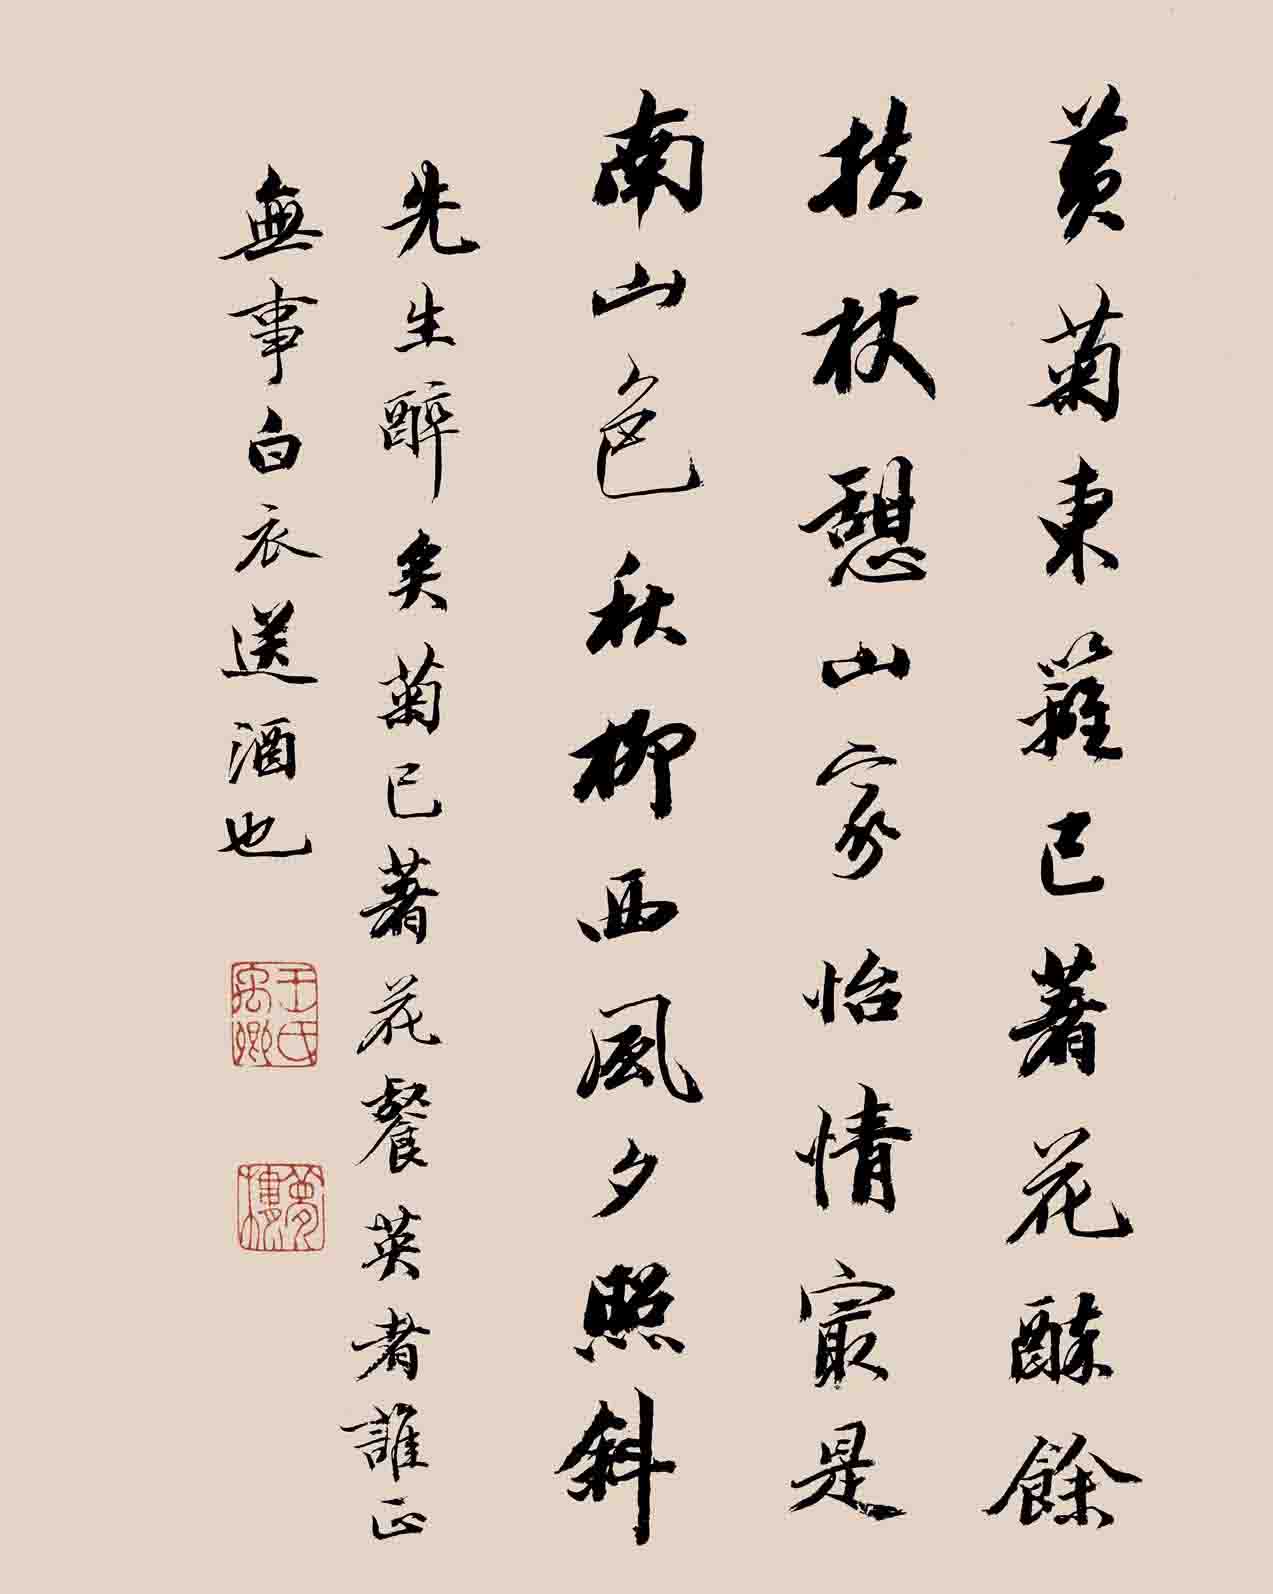 黄菊東籬已著花酥餘
扶杖憩山家怡情寂是
南山色秋柳西風夕照斜
先生醉矣菊已著花餐英者誰正
無事白衣送酒也
王氏禹卿
夢樓